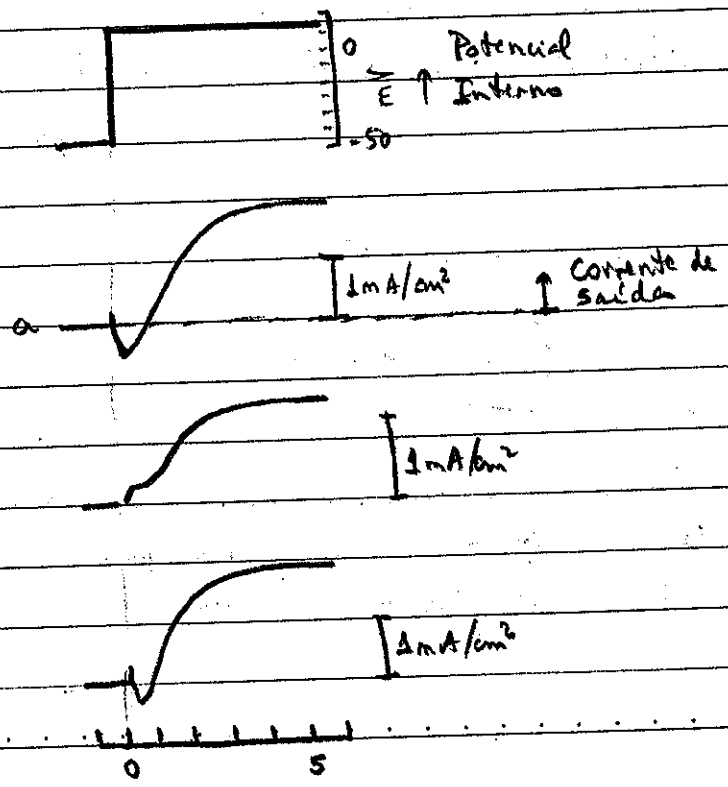 0 Potencial
E ↑ Interno
-50
a 1mA/cm² ↑ Corrente de
saída
1mA/cm²
1mA/cm²
0 5